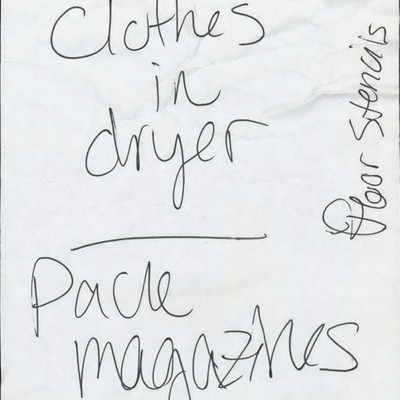 Clothes
in
dryer
Pack
magazines
floor stencils